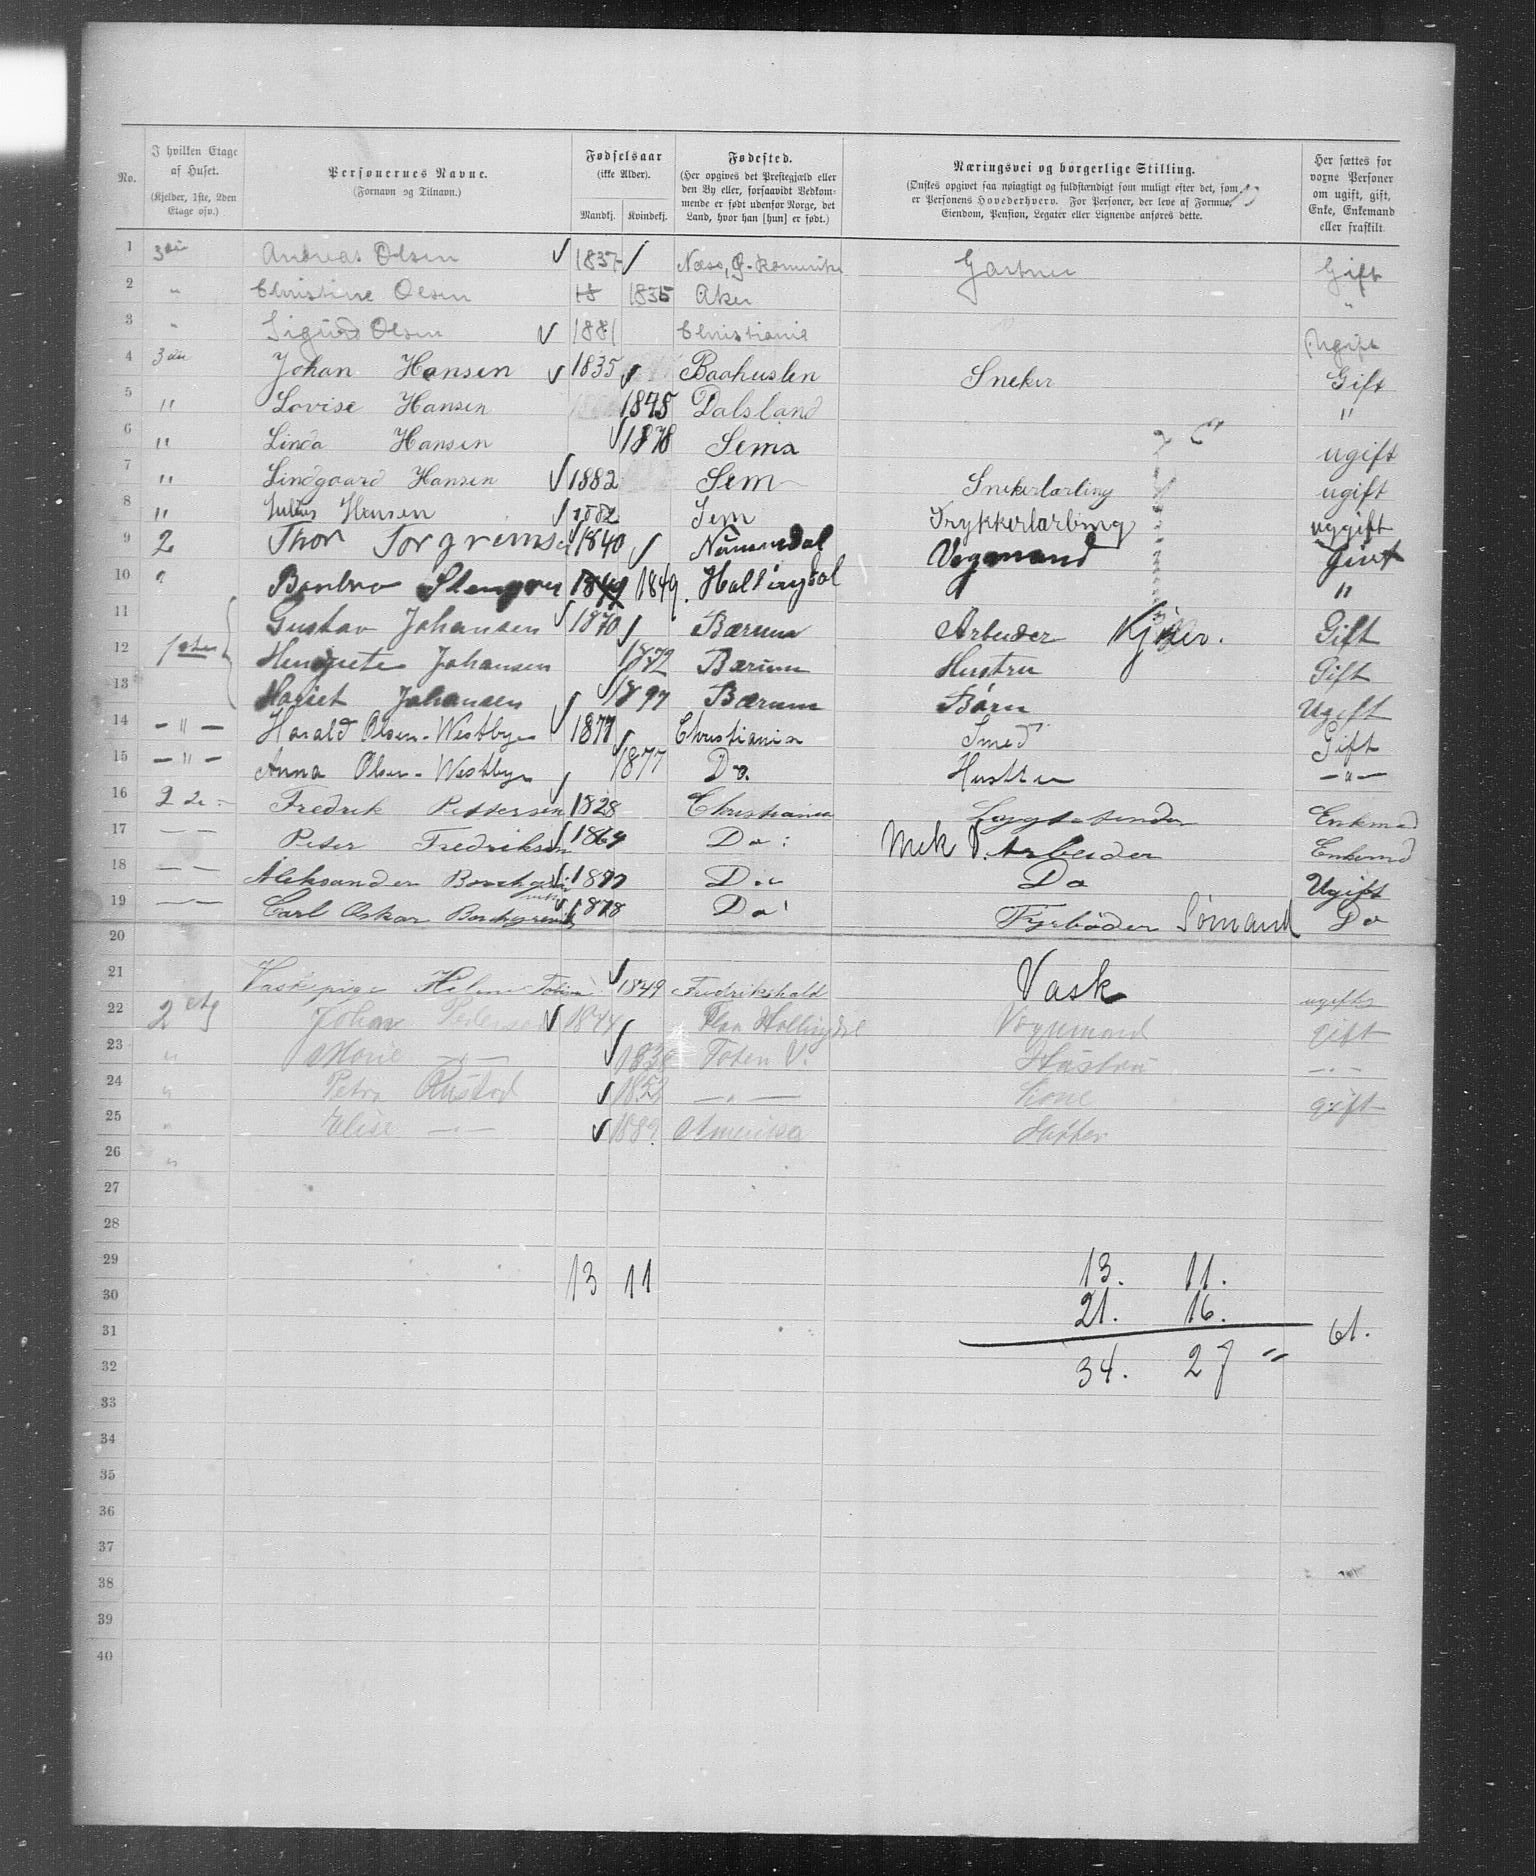 No. I hvilken Etage af Huset. (Kjelder, 1ste, 2den Etage osv.) Personernes Navne. (Fornavn og Tilnavn.) Fødselsaar (ikke Alder). Mandkj. Kvindekj. Fødested. (Her opgives det Prestegjæld eller den By eller, forsaavidt Vedkommende er født udenfor Norge, det Land, hvor han [hun] er født.) Næringsvei og borgerlige Stilling. (Ønskes opgivet saa nøiagtigt og fuldstændigt som muligt efter det, som er Personens Hovederhverv. For Personer, der leve af Formue, Eiendom, Pension, Legater eller Lignende anføres dette. Her sættes for voxne Personer om ugift, gift, Enke, Enkemand eller fraskilt.
1 3die Andreas Olsen 1837 Næss, Ø. Romerike Gartner Gift
2 " Christine Olsen 18 1835 Aker "
3 " Sigurd Olsen 1881 Christiania Ugift
4 3die Johan Hansen 1835 Baahuslen Sneker Gift
5 " Lovise Hansen 1845 Dalsland "
6 " Linda Hansen 1878 Sem ugift
7 " Lindgaard Hansen 1882 Sem Snekerlærling ugift
8 " Julius Hansen 1882 Sem Trykkerlærling uggift
9 2 Thor Torgrimsen 1840 Nummedal Vognmand Givt
10 " Barbro 1849 1849. Hallingdal "
11 Gustav Johansen 1870 Bærum Arbeider Gift
12 1ste Johansen 1872 Bærum Hustru Gift
13 Johansen 1897 Bærum Børn Ugift
14 — " — Harald Olsen-Westbye 1877 Christiania Smed Gift
15 — " — Anna Olsen-Westbye 1877 Do. Hustru — " —
16 2 Fredrik Pettersen 1828 Christiania Enkmad
17 — — Peter Fredriksen 1869 Do: Mek V. Arbeider Enkemd
18 — — Aleksander 1877 Do Do Ugift
19 — — Carl Oskar Borchgrevink 1878 Do Fyrbøder Sømand Do
20
21 Vaskepige Helene 1849 Fredrikshald Vask ugift
22 2 etg Johan Pedersen 1844 Flaa Hallingdal Vognmand gift
23 " Marie — " — 1838 Toten V. Hustru — " —
24 " Petra Rustad 1853 — " — Kone gift
25 " Elise — " — 1889 Amerika Datter
26 "
27
28
29 13 11 13. 11.
30 21. 16.
31 61.
32 34. 27 =
33
34
35
36
37
38
39
40